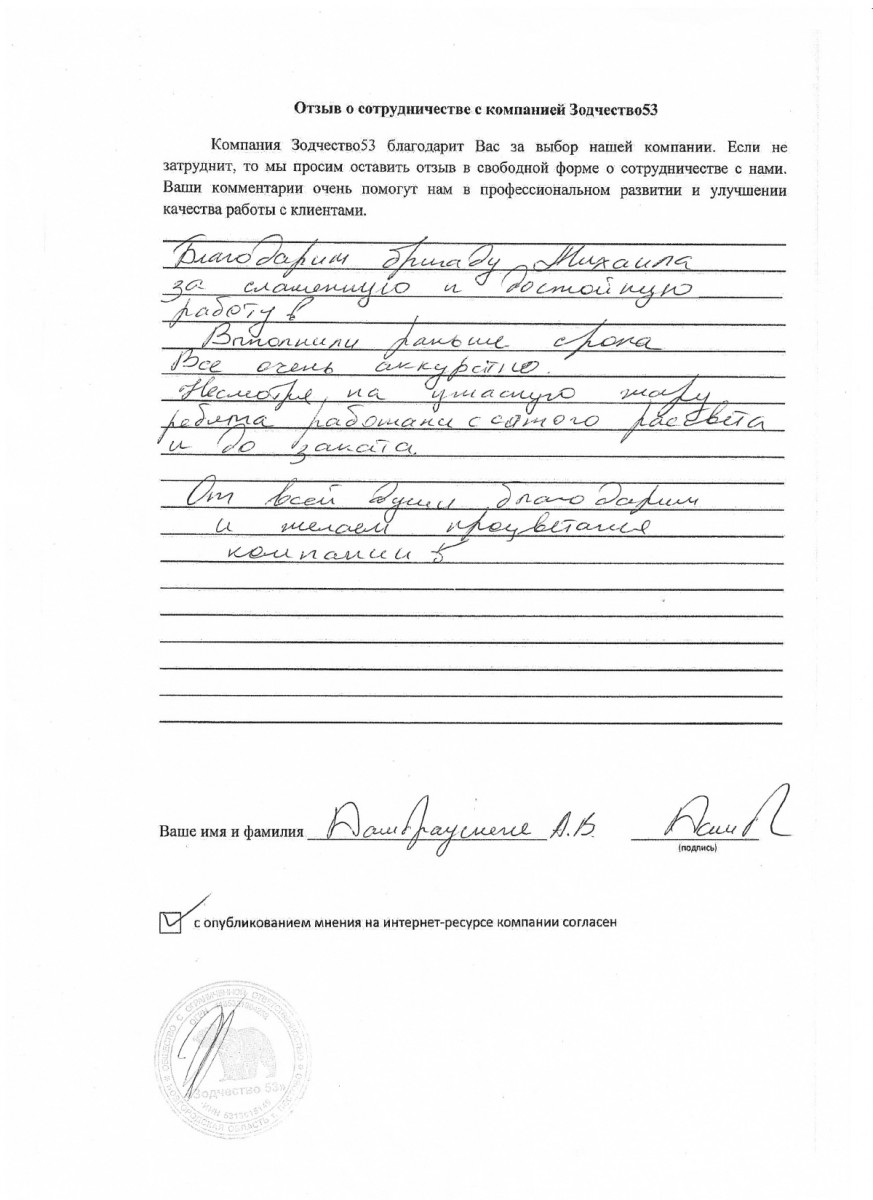 Отзыв о сотрудничестве с компанией Зодчество53
Компания Зодчество53 благодарит Вас за выбор нашей компании. Если не
затруднит, то мы просим оставить отзыв в свободной форме о сотрудничестве с нами.
Ваши комментарии очень помогут нам в профессиональном развитии и улучшении
качества работы с клиентами.
Благодарим бригаду Михаила
за слаженную и достойную
работу
Выполнили раньше срока
Все очень аккуратно.
Несмотря, на ужасную жару
ребята работали с самого рассвета
и до заката.
От всей души благодарим
и желаем процветания
компании
Ваше имя и фамилия А.В.
(подпись)
с опубликованием мнения на интернет-ресурсе компании согласен
Зодчество 53»